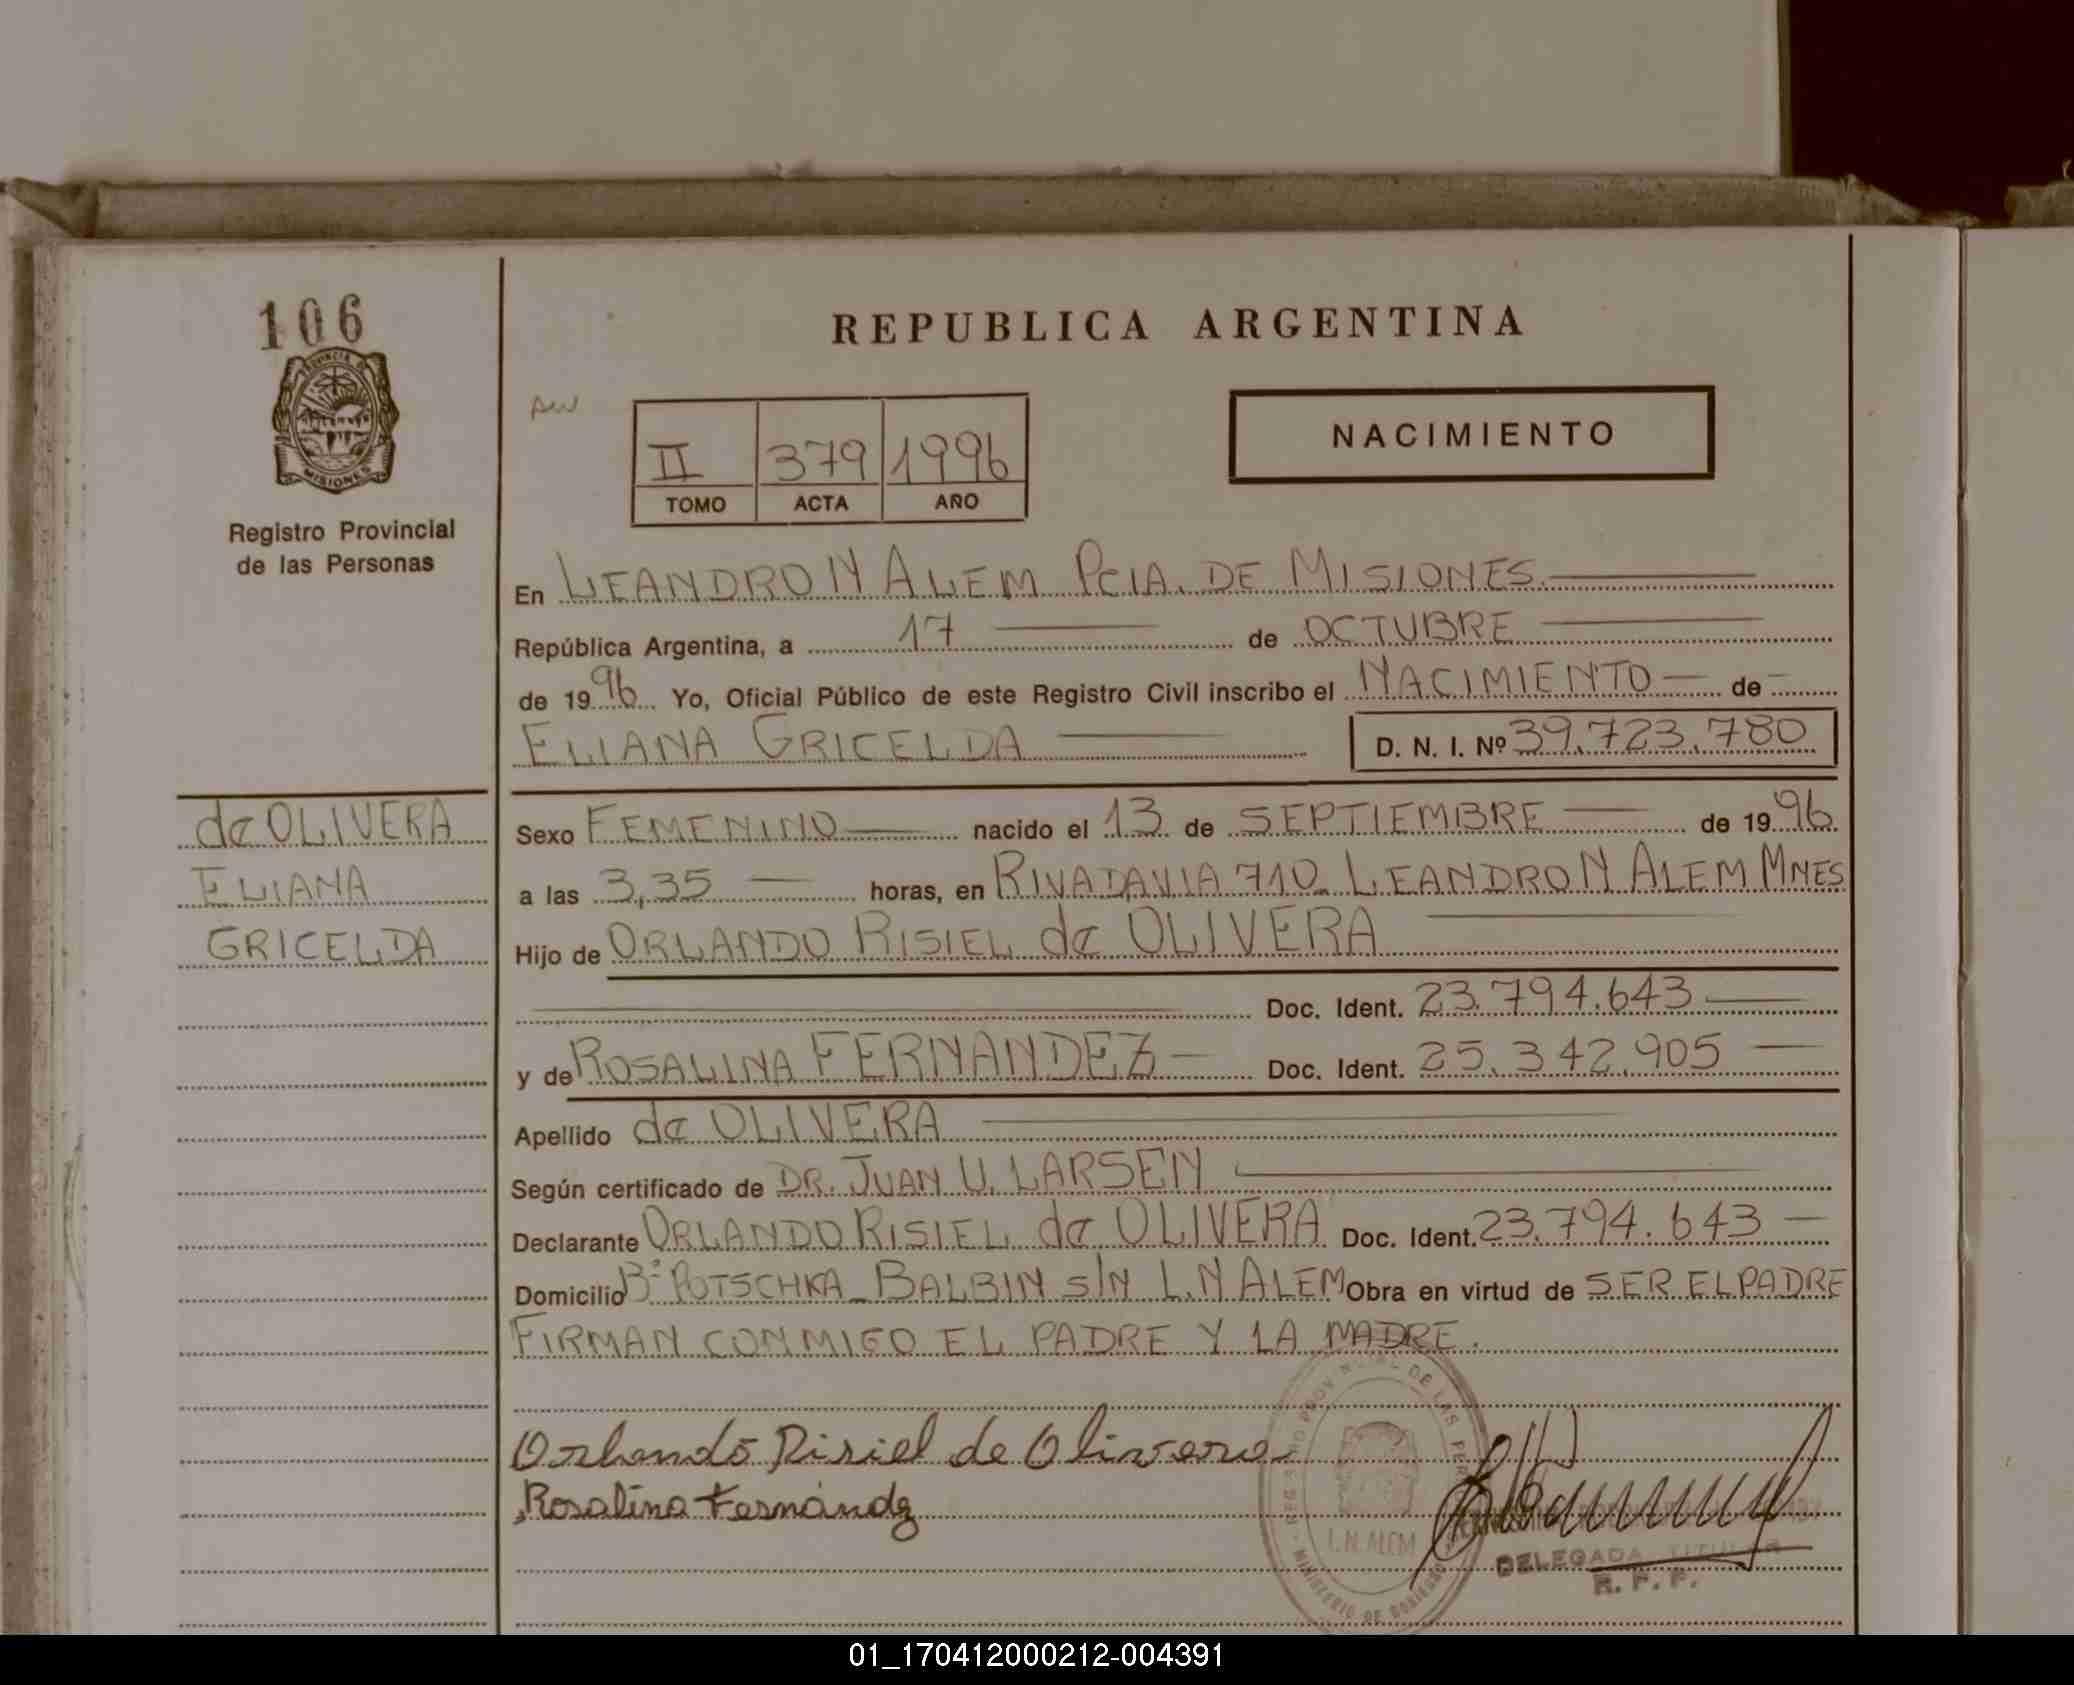 106
PROVINCIA DE
MISIONES
Registro Provincial
de las Personas
REPUBLICA ARGENTINA
II 379 1996
TOMO ACTA AÑO
NACIMIENTO
En LEANDRO N ALEM PCIA. DE MISIONES.
República Argentina, a 17 de OCTUBRE
de 1996 Yo, Oficial Público de este Registro Civil inscribo el NACIMIENTO de
ELIANA GRICELDA D. N. I. Nº 39.723.780
de OLIVERA
ELIANA
GRICELDA
Sexo FEMENINO nacido el 13 de SEPTIEMBRE de 1996
a las 3,35 horas, en RIVADAVIA 710 LEANDRO N ALEM MNES
Hijo de ORLANDO RISIEL de OLIVERA
Doc. Ident. 23.794.643
y de ROSALINA FERNANDEZ Doc. Ident. 25.342.905
Apellido de OLIVERA
Según certificado de DR. JUAN U. LARSEN
Declarante ORLANDO RISIEL de OLIVERA Doc. Ident. 23.794.643
Domicilio Bº POTSCHKA BALBIN S/N L.N ALEM Obra en virtud de SER EL PADRE
FIRMAN CONMIGO EL PADRE Y LA MADRE.
Orlando Risiel de Olivera
Rosalina Fernández
REGISTRO PROVINCIAL DE LAS PER
L.N. ALEM
MINISTERIO DE GOBIERNO
DELEGADA TITULAR
R. P. P.
01_170412000212-004391